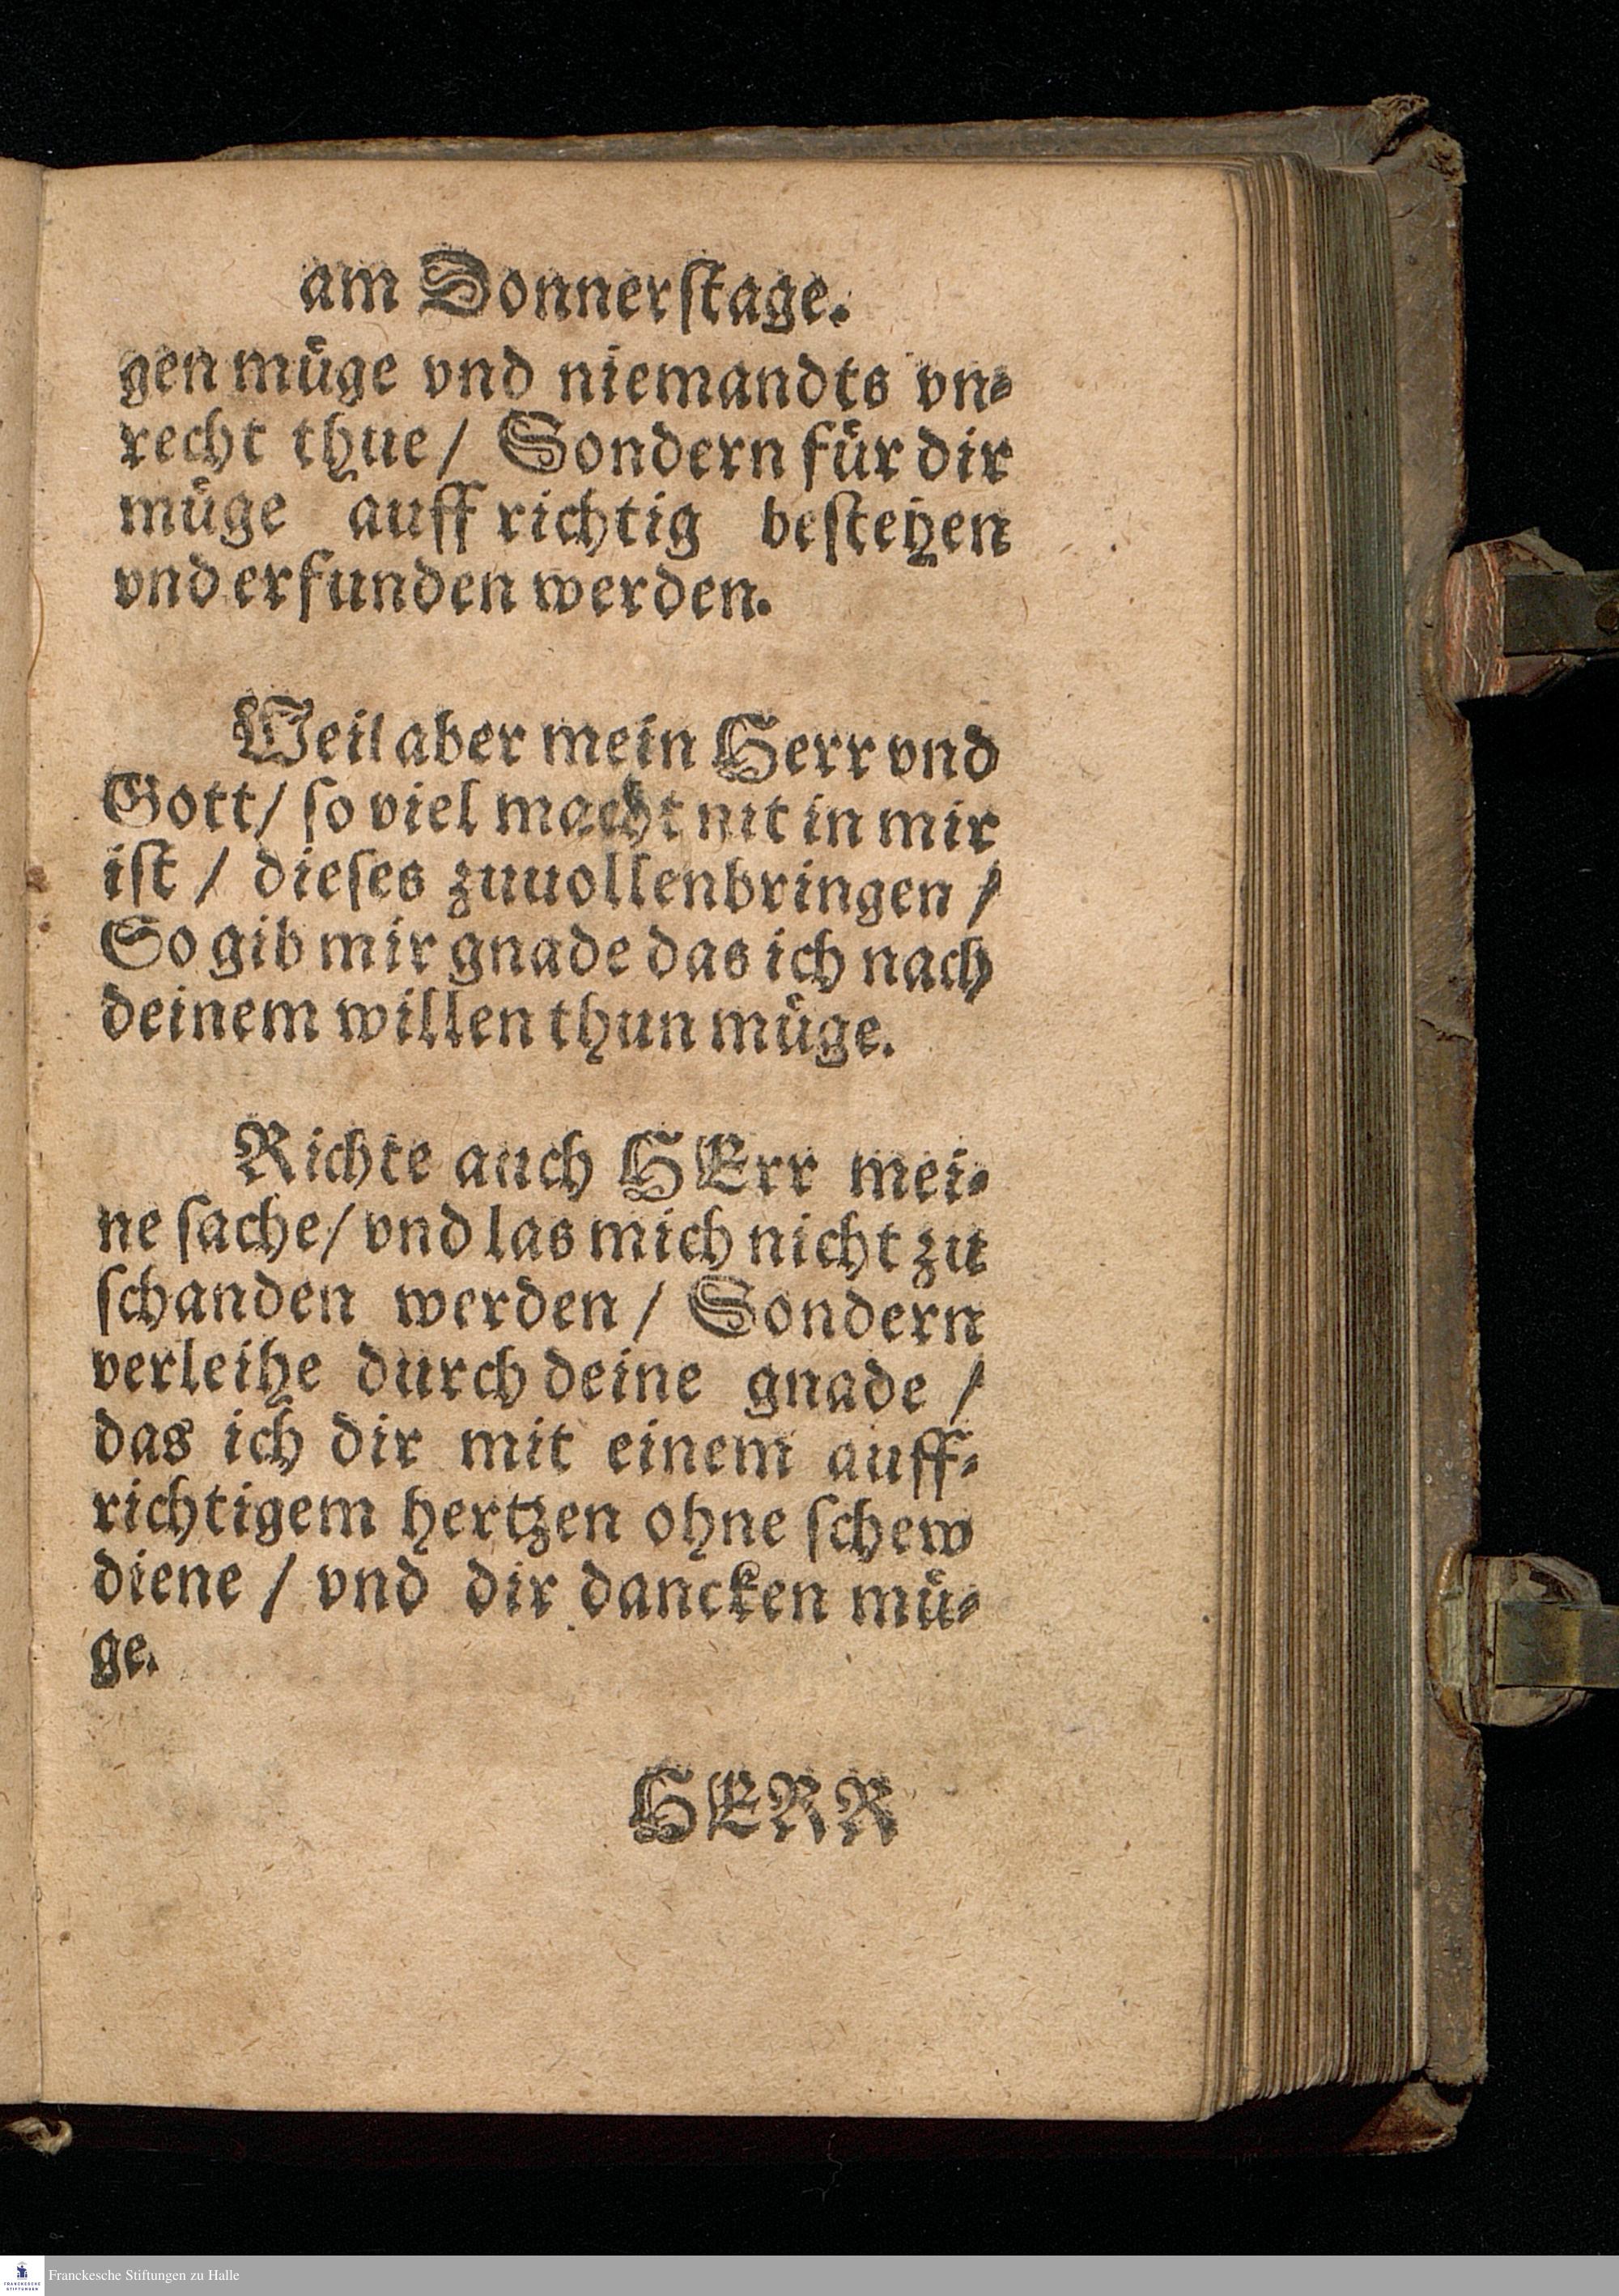 am Donnerstage.
gen müge vnd niemandts vn-
recht thue/ Sondern für dir
müge auffrichtig bestehen
vnd erfunden werden.
Weil aber mein Herr vnd
Gott/ so viel macht nit in mir
ist / dieses zuuollenbringen /
So gib mir gnade das ich nach
deinem willen thun müge.
Richte auch HErr mei-
ne sache/ vnd las mich nicht zu
schanden werden / Sondern
verleihe durch deine gnade /
das ich dir mit einem auff-
richtigem hertzen ohne schew
diene / vnd dir dancken mü-
ge.
HERR
FRANCKESCHE
STIFTUNGEN
Franckesche Stiftungen zu Halle